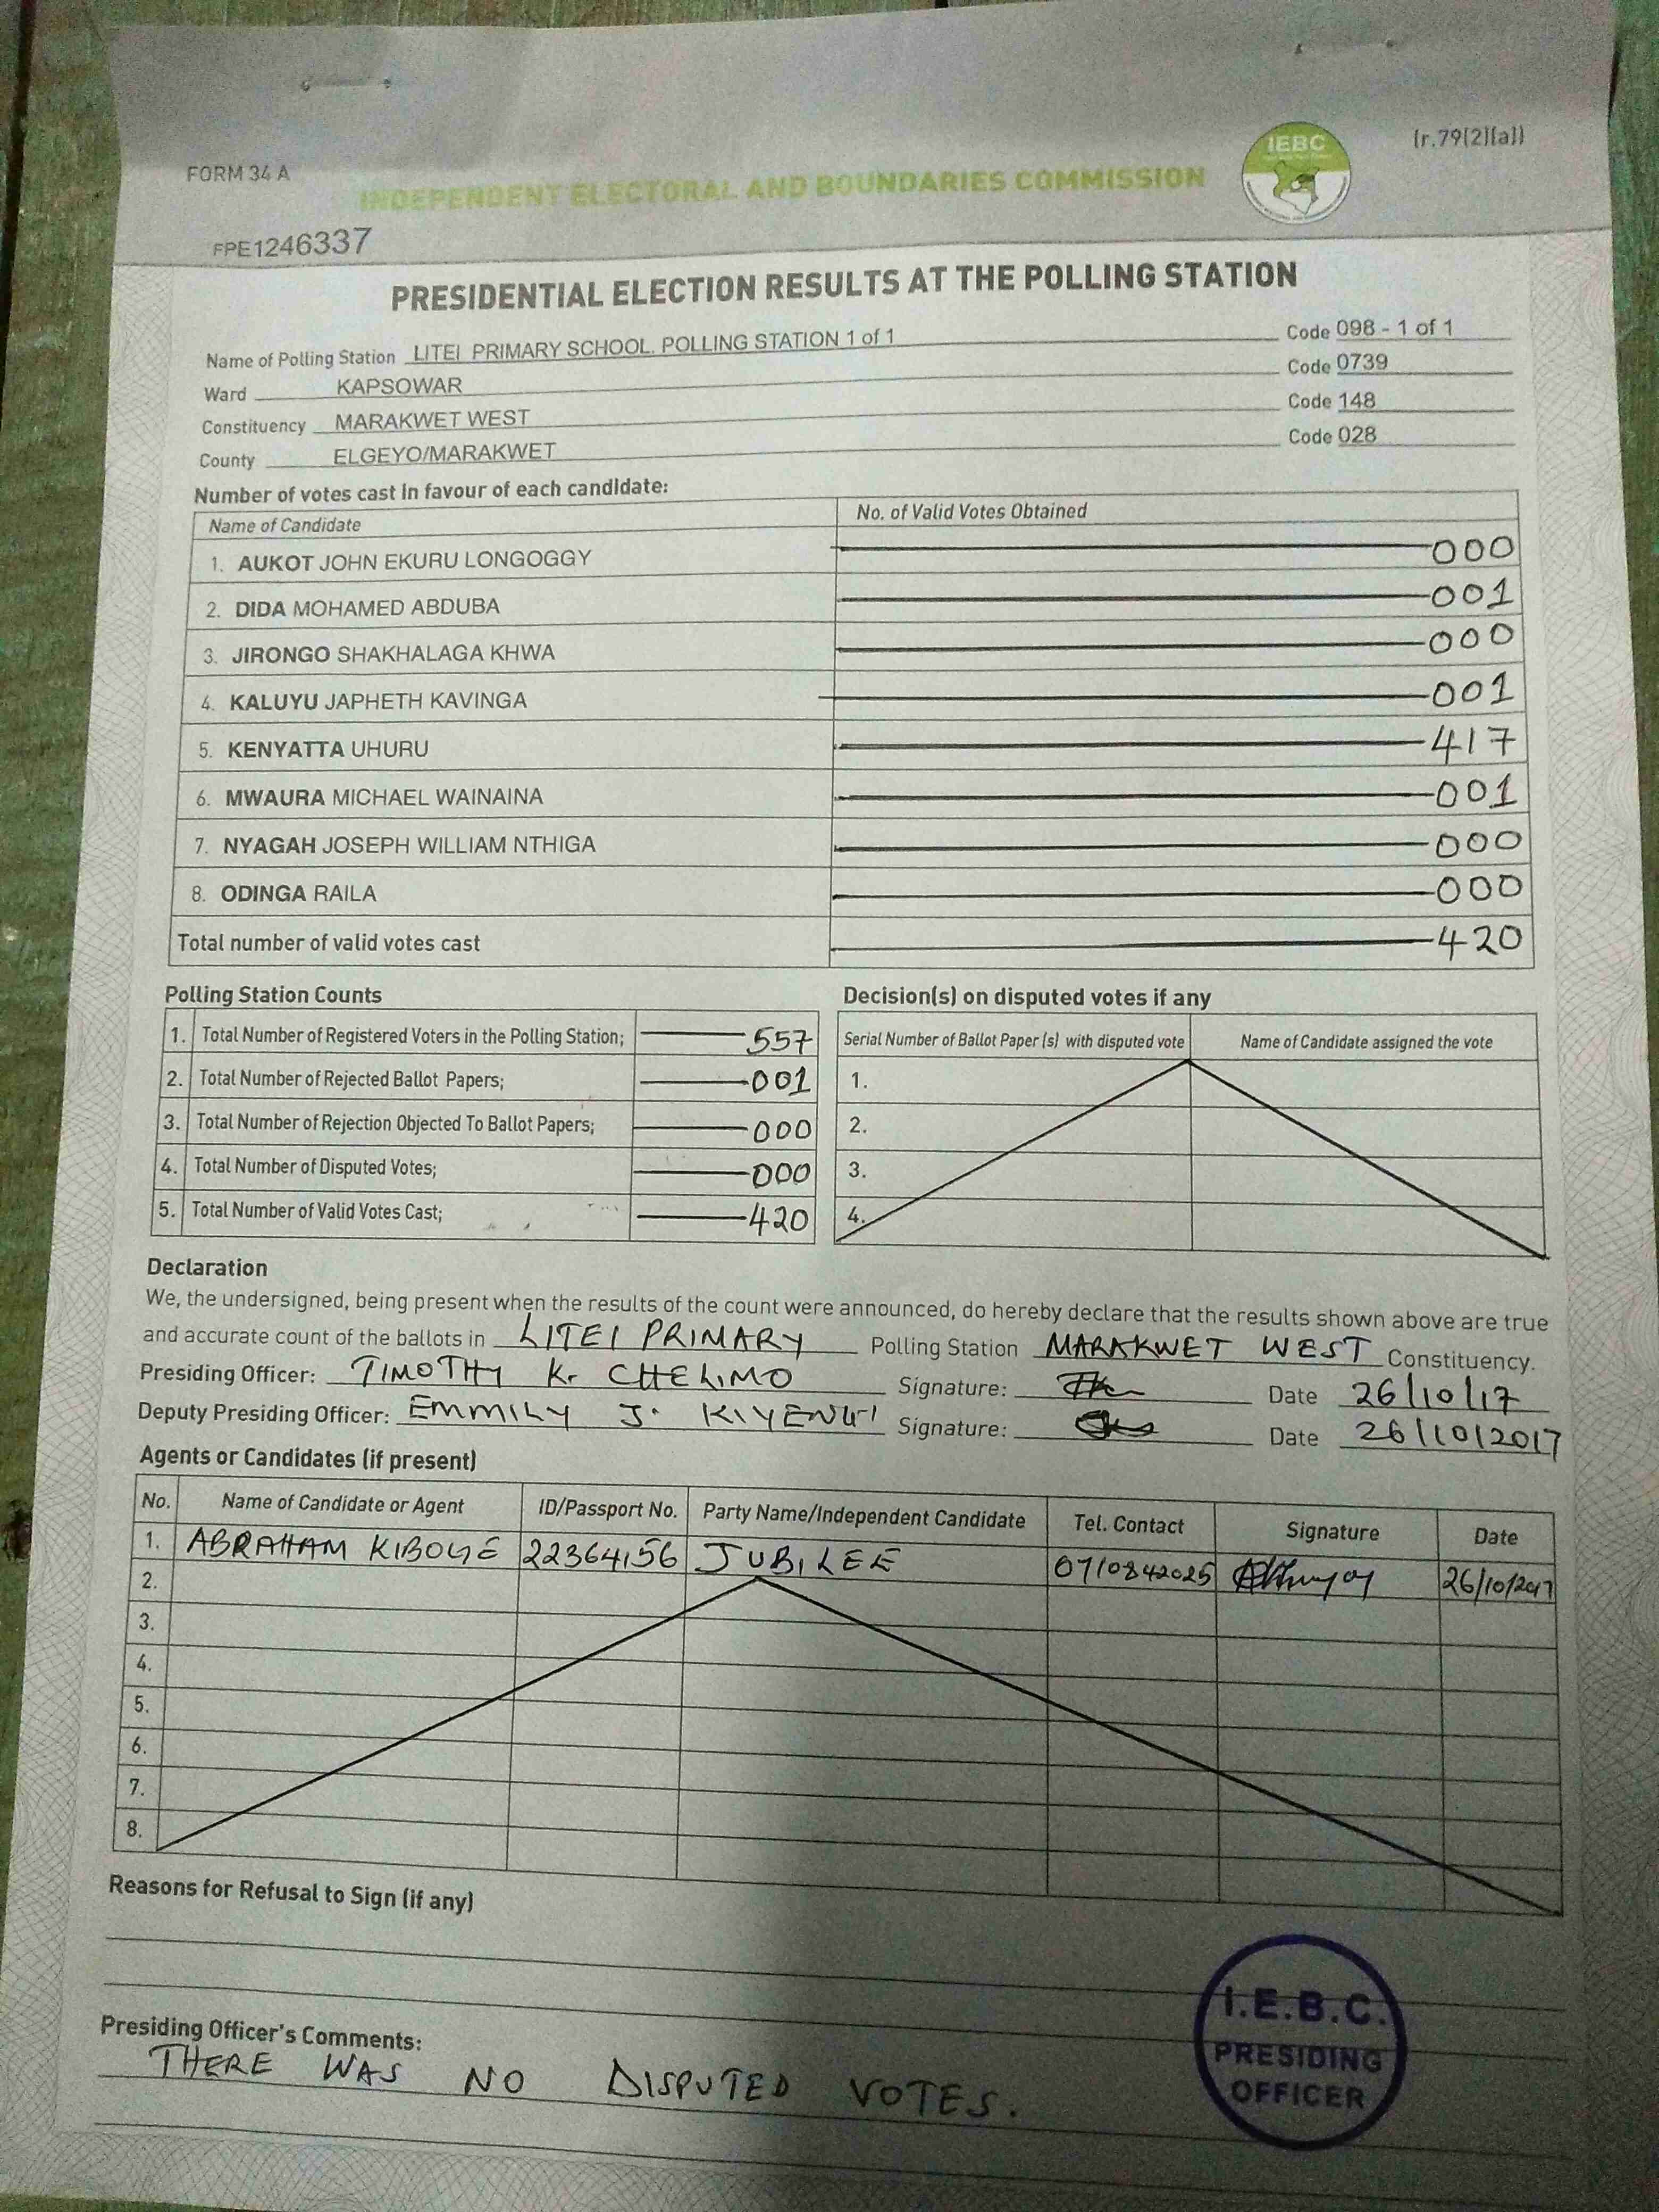 (r.79(2)(a))
IEBC
FORM 34 A
INDEPENDENT ELECTORAL AND BOUNDARIES COMMISSION
FPE1246337
PRESIDENTIAL ELECTION RESULTS AT THE POLLING STATION
Name of Polling Station LITEI PRIMARY SCHOOL. POLLING STATION 1 of 1 Code 098 - 1 of 1
Ward KAPSOWAR Code 0739
Constituency MARAKWET WEST Code 148
County ELGEYO/MARAKWET Code 028
Number of votes cast in favour of each candidate:
Name of Candidate No. of Valid Votes Obtained
1. AUKOT JOHN EKURU LONGOGGY 000
2. DIDA MOHAMED ABDUBA 001
3. JIRONGO SHAKHALAGA KHWA 000
4. KALUYU JAPHETH KAVINGA 001
5. KENYATTA UHURU 417
6. MWAURA MICHAEL WAINAINA 001
7. NYAGAH JOSEPH WILLIAM NTHIGA 000
8. ODINGA RAILA 000
Total number of valid votes cast 420
Polling Station Counts
1. Total Number of Registered Voters in the Polling Station; 557
2. Total Number of Rejected Ballot Papers; 001
3. Total Number of Rejection Objected To Ballot Papers; 000
4. Total Number of Disputed Votes; 000
5. Total Number of Valid Votes Cast; 420
Decision(s) on disputed votes if any
Serial Number of Ballot Paper (s) with disputed vote Name of Candidate assigned the vote
1.
2.
3.
4.
Declaration
We, the undersigned, being present when the results of the count were announced, do hereby declare that the results shown above are true
and accurate count of the ballots in LITEI PRIMARY Polling Station MARAKWET WEST Constituency.
Presiding Officer: TIMOTHY K. CHELIMO Signature: Date 26/10/17
Deputy Presiding Officer: EMMILY J. Signature: Date 26/10/2017
Agents or Candidates (if present)
No. Name of Candidate or Agent ID/Passport No. Party Name/Independent Candidate Tel. Contact Signature Date
1. ABRAHAM 22364156 JUBILEE 0710842025 26/10/2017
2.
3.
4.
5.
6.
7.
8.
Reasons for Refusal to Sign (if any)
Presiding Officer's Comments:
THERE WAS NO DISPUTED VOTES.
I.E.B.C.
PRESIDING
OFFICER